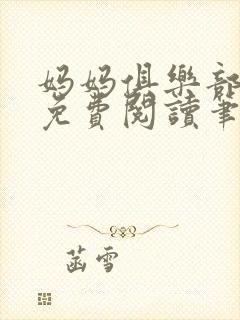 妈妈俱樂部
免費閱讀筆
菡雪